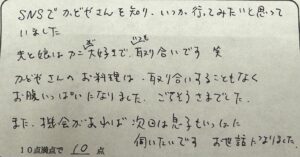 SNSでかどやさんを知り、いつか行ってみたいと思って
いました
夫と娘はカニが大好きで、いつも取り合いです 笑
かどやさんのお料理は、取り合いすることもなく
お腹いっぱいになりました。ごちそうさまでした。
また、機会があれば次回は息子もいっしょに
伺いたいです お世話になりました
10点満点で 10 点